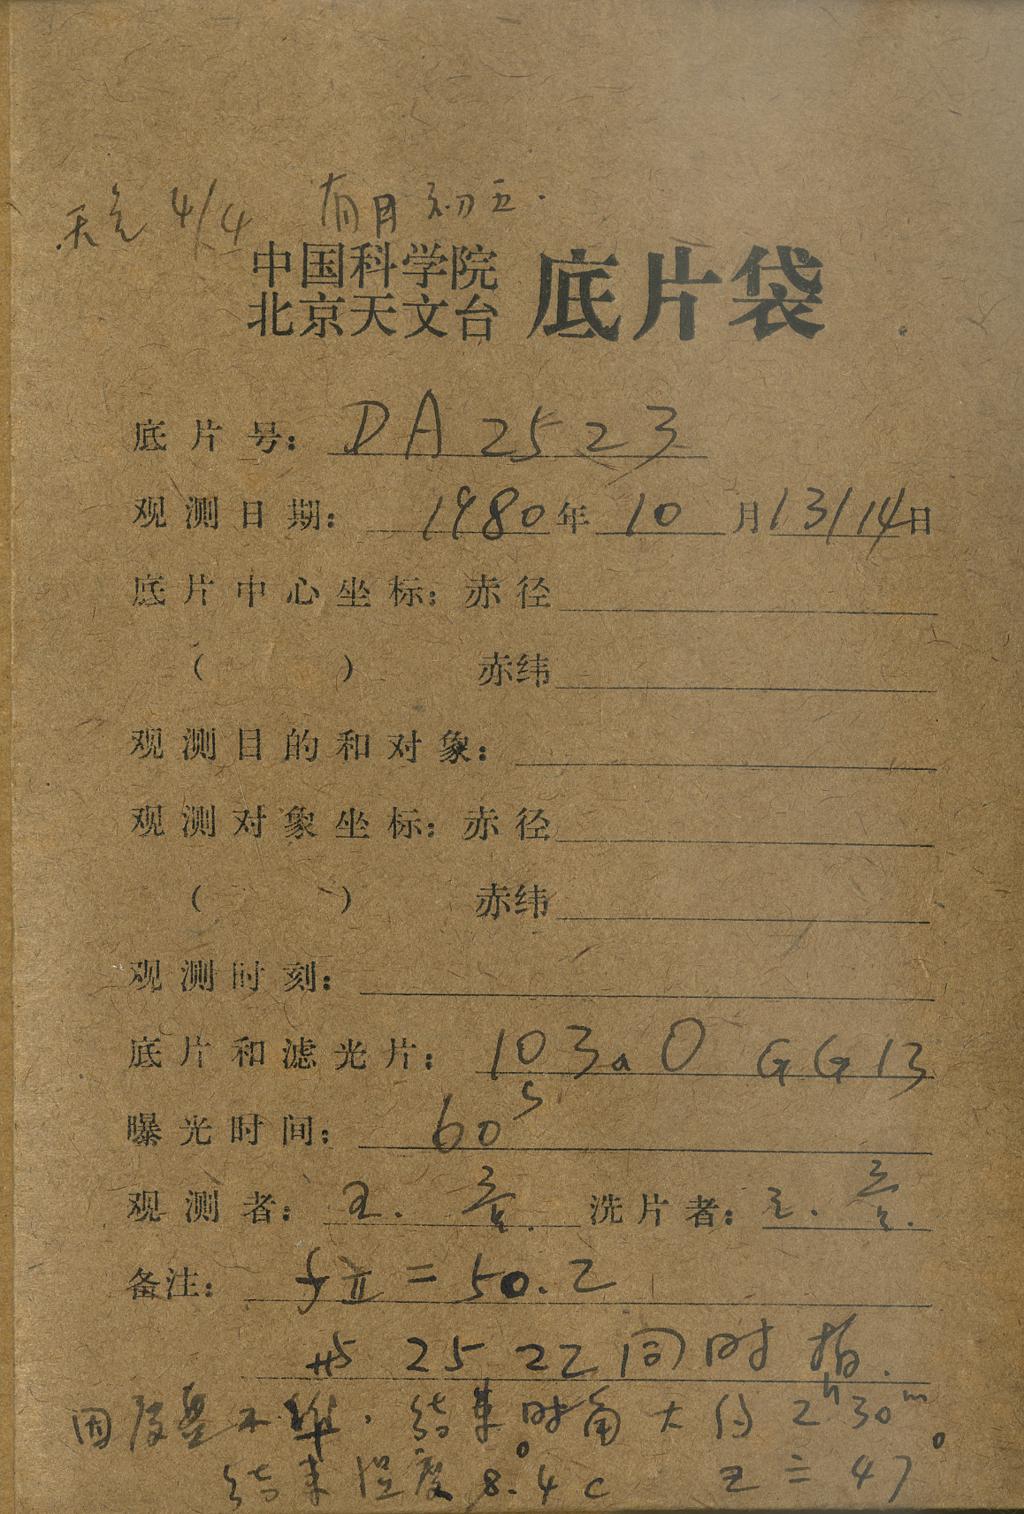 天光 4/4 有月 初五.
中国科学院 底片袋
北京天文台
底片号: DA 2523
观测日期: 1980年 10 月13/14日
底片中心坐标: 赤径
( ) 赤纬
观测目的和对象:
观测对象坐标: 赤径
( ) 赤纬
观测时刻:
底片和滤光片: 103aO GG13
曝光时间: 60s
观测者: 王. 洗片者: 王.
备注: fII = 50.2
与 2522 同时拍.
因度盘不准. 结束时角大约 2h30m
结束温度 8°.4c z = 47°